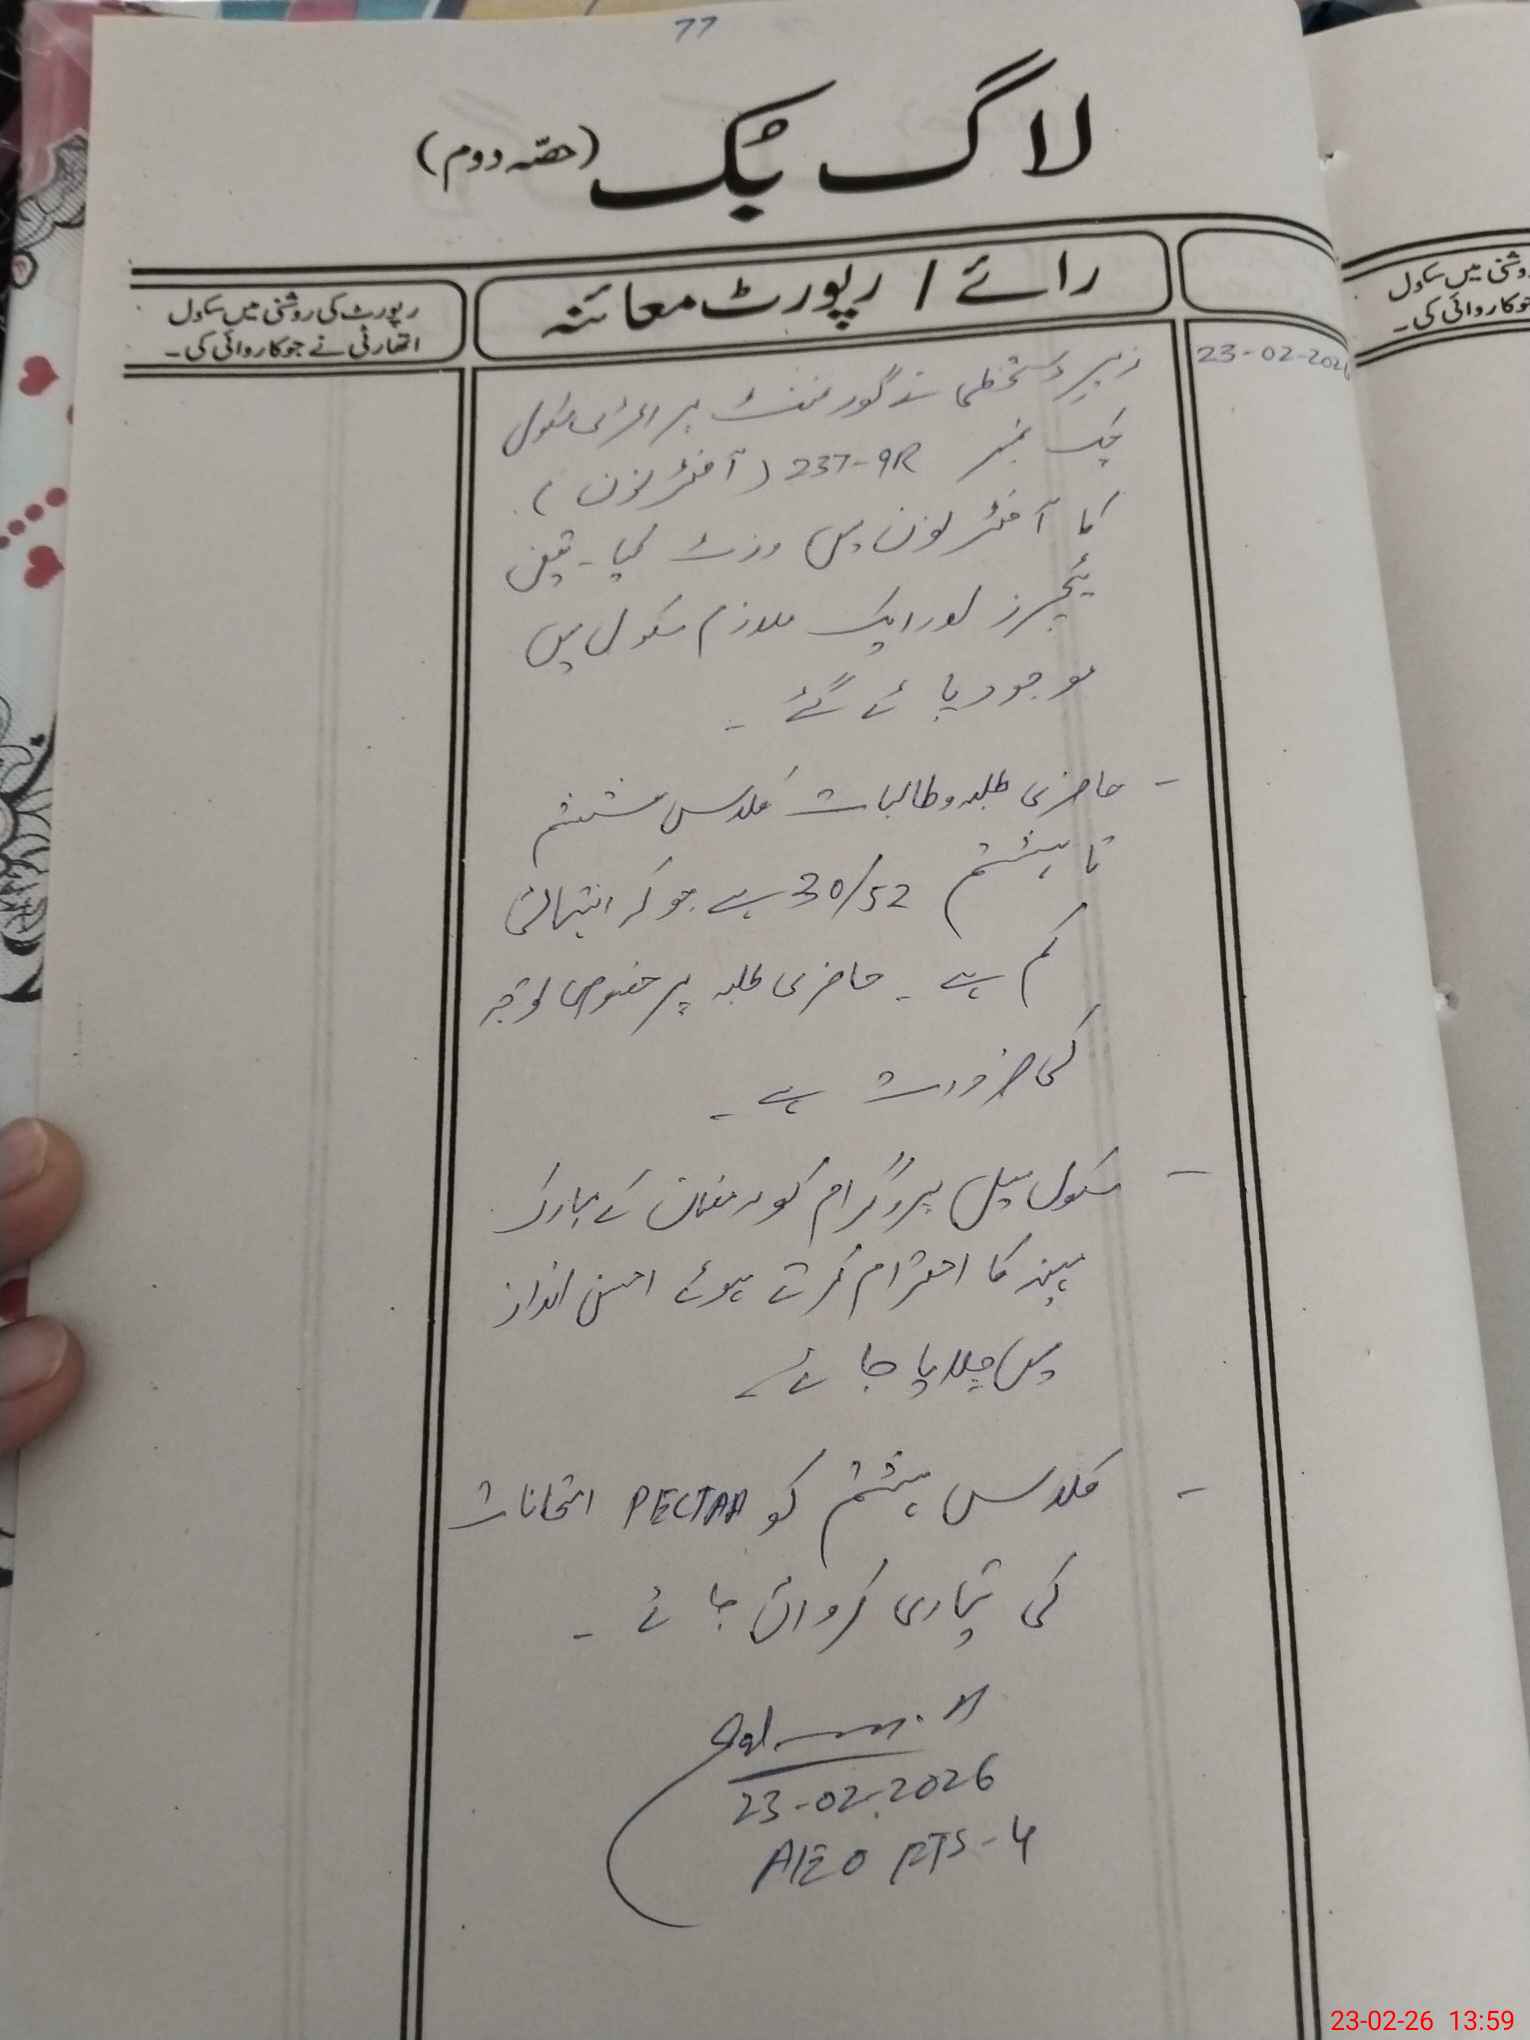 77
لاگ بُک (حصّہ دوم)
رائے / رپورٹ معائنہ
رپورٹ کی روشنی میں سکول
اتھارٹی نے جو کاروائی کی۔
روشنی میں سکول
جو کاروائی کی۔
23-02-2026
زیرِ دستخطی نے گورنمنٹ پرائمری سکول
چک نمبر 237-9R (آفٹر نون)
کا آفٹر نون میں وزٹ کیا۔ تین
ٹیچرز اور ایک ملازم سکول میں
موجود پائے گئے۔
- حاضری طلبہ و طالبات کلاس ششم
تا ہشتم 30/52 ہے جو کہ انتہائی
کم ہے۔ حاضری طلبہ پر خصوصی توجہ
کی ضرورت ہے۔
- سکول میل پروگرام کو رمضان کے مبارک
مہینہ کا احترام کرتے ہوئے احسن انداز
میں چلایا جائے
- کلاس ہشتم کو PECTAA امتحانات
کی تیاری کروائی جائے۔
23-02-2026
AEO RTS-4
23-02-26 13:59